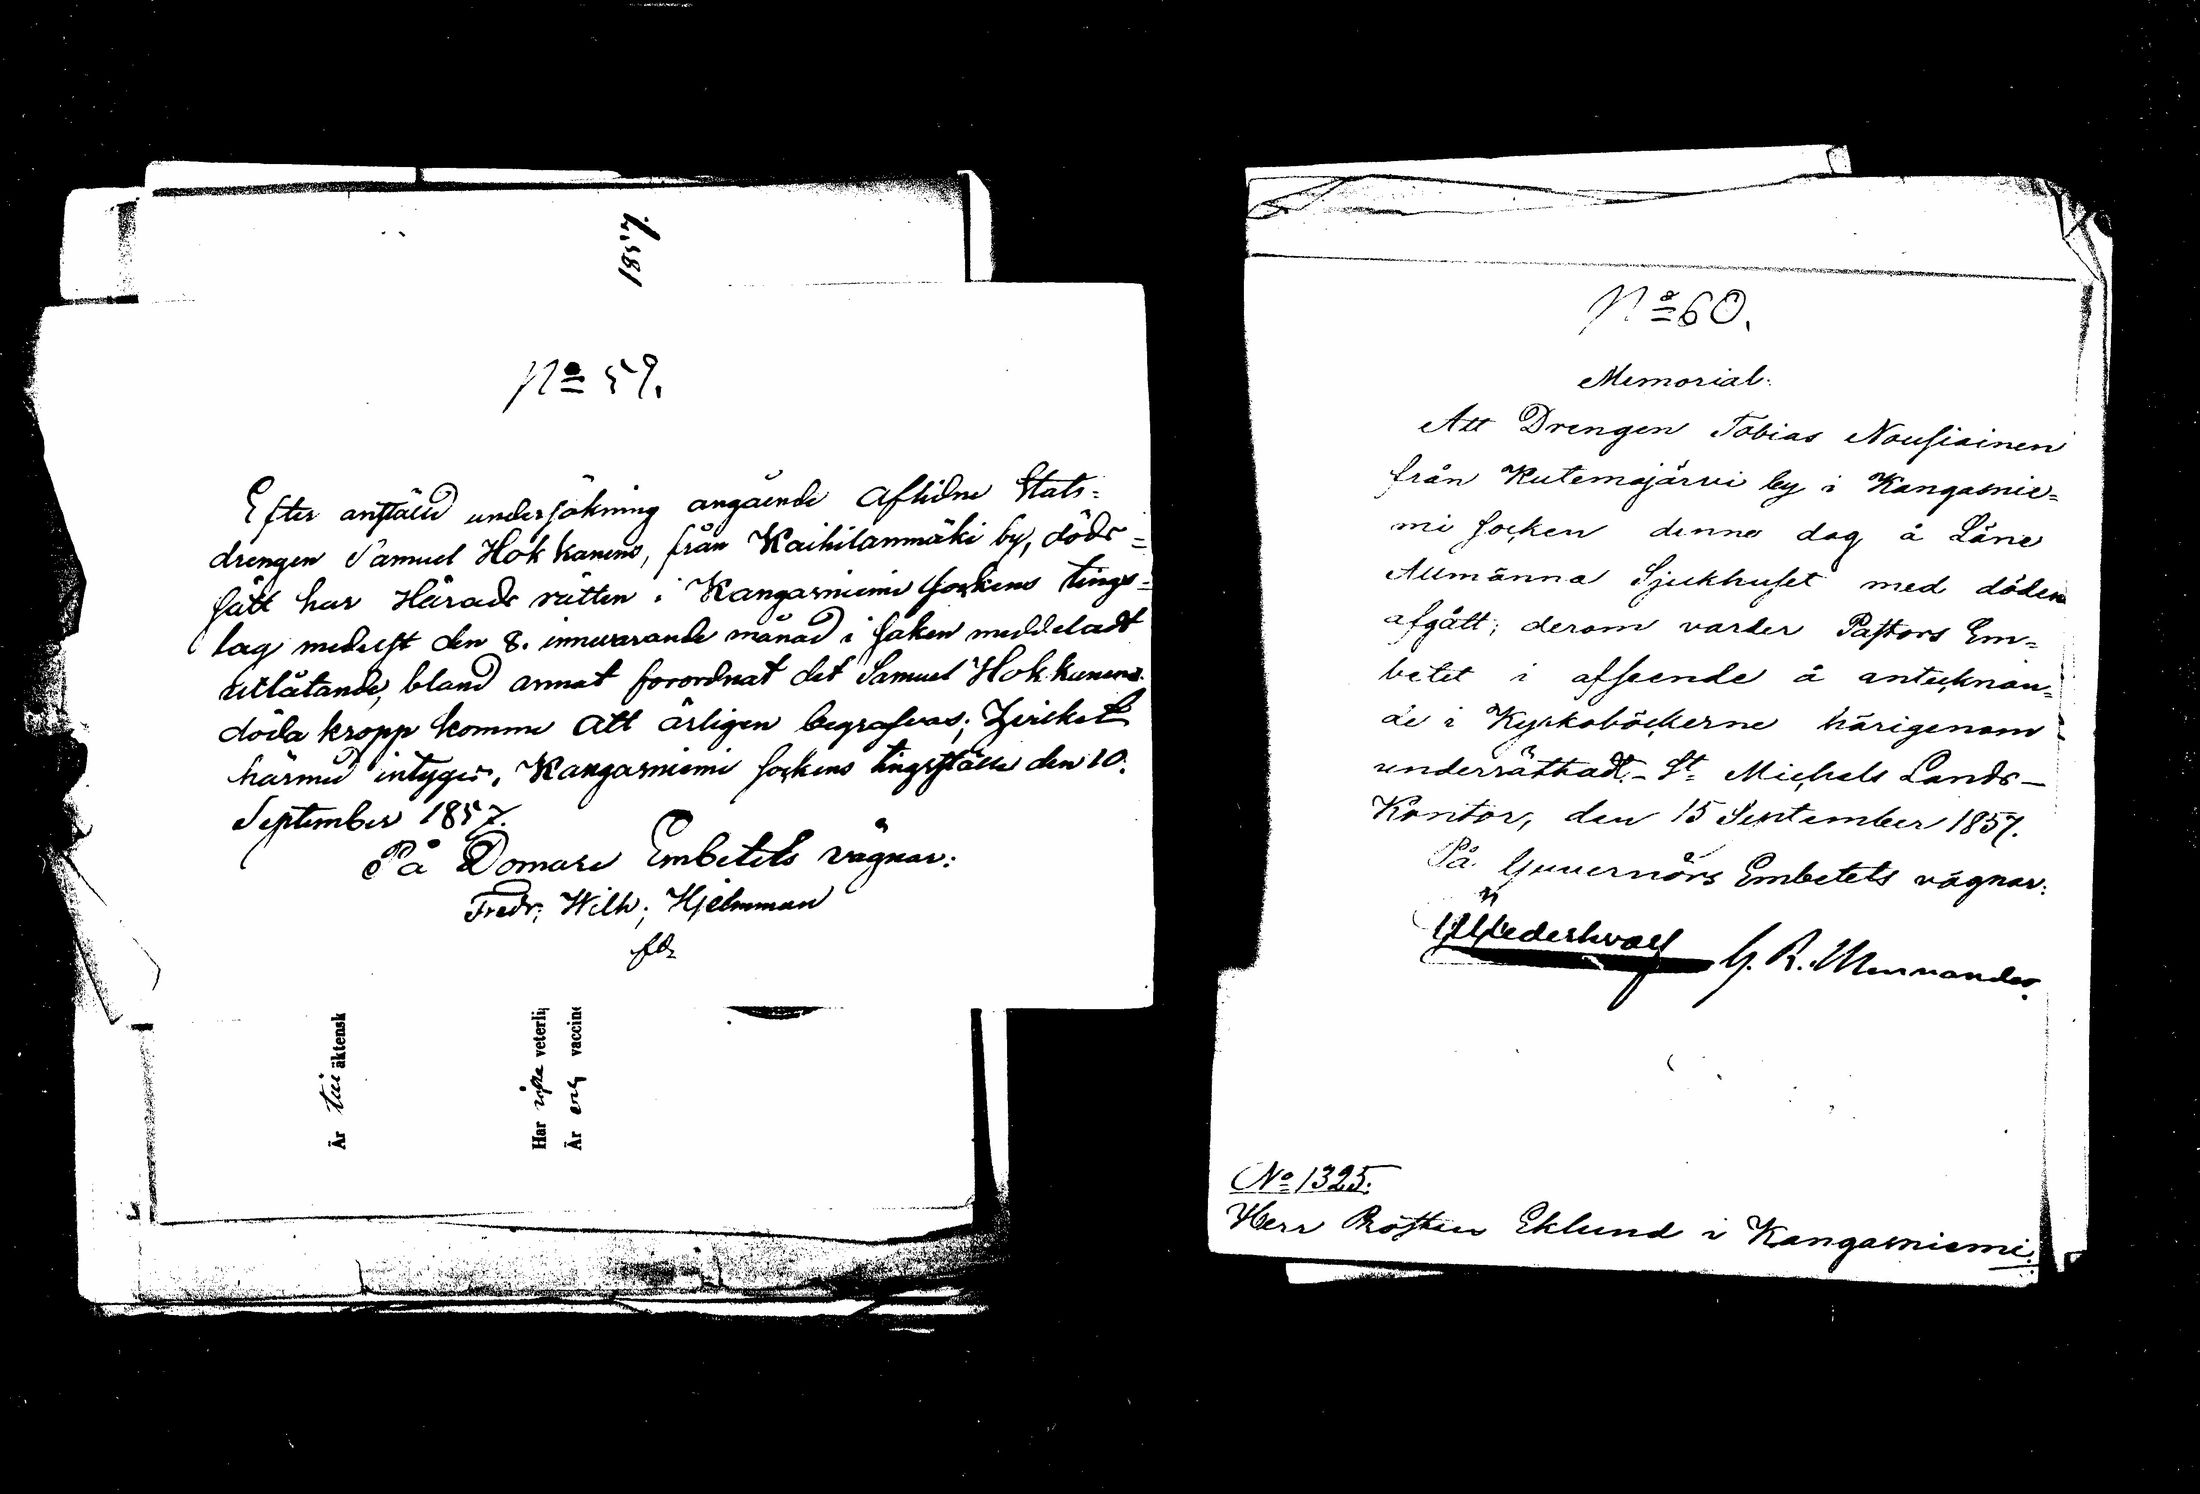 1857.
No 59.
Efter anstäld undersökning angående aflidne Stats-
drengen Samuel Hokkanens, från Kaihilanmäki by, döds-
sätt har Härads rätten i Kangasniemi Sockens tings-
lag medelst den 8. innevarande månad i saken meddeladt
utlåtande, bland annat förordnat det Samuel Hokkanens
döda kropp komme att ärligen begrafvas; hvilket
härmed intygas, Kangasniemi Sockens tingsställe den 10.
September 1857.
På Domare Embetets vägnar:
Fredr. Wilh. Hjelmman
Är äktensk
Har veterli
Är vaccine
No 60.
Memorial.
Att Drengen Tobias Nousiainen
från Kutemajärvi by i Kangasnie=
mi Socken denna dag å Läne
Allmänna Sjukhuset med döden
afgått; derom varder Pastors Em=
betet i afseende å antecknan=
de i Kyrkoböckerne härigenom
underrättadt. St Michels Lands-
Kontor, den 15 September 1857.
På Guvernörs Embetets vägnar:
G. R.
No 1325.
Herr Prosten Eklund i Kangasniemi.